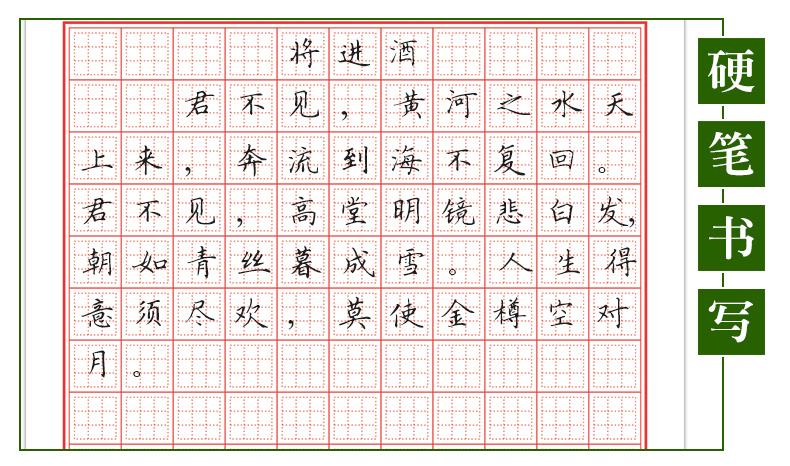 将进酒
君不见，黄河之水天
上来，奔流到海不复回。
君不见，高堂明镜悲白发，
朝如青丝暮成雪。人生得
意须尽欢，莫使金樽空对
月。
硬笔书写